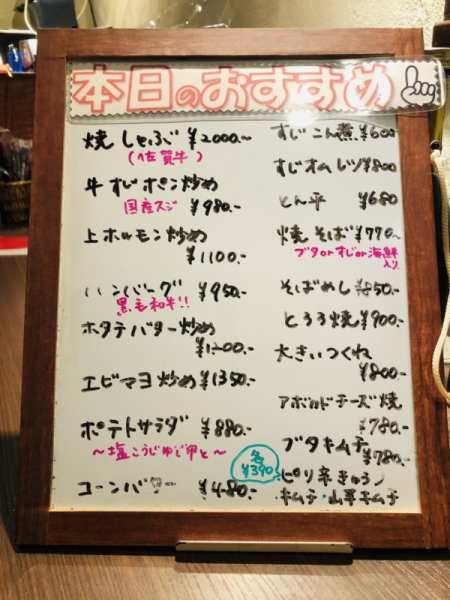 本日のおすすめ
焼しゃぶ ¥2000.~
(佐賀牛)
牛すじポン炒め
国産スジ ¥980.-
上ホルモン炒め
¥1100.-
ハンバーグ ¥950.-
黒毛和牛!!
ホタテバター炒め
¥1200.-
エビマヨ炒め ¥1350.-
ポテトサラダ ¥880.-
~塩こうじゆで卵と~
コーンバター ¥480.-
すじこん煮 ¥600
すじオムレツ ¥800
とん平 ¥680
焼そば ¥770.-
ブタorすじor海鮮
入り
そばめし ¥850.-
とろろ焼 ¥900.-
大きいつくね
¥800.-
アボカドチーズ焼
¥780.-
ブタキムチ
¥780.-
各
¥390
ピリ辛きゅうり
キムチ・山芋キムチ